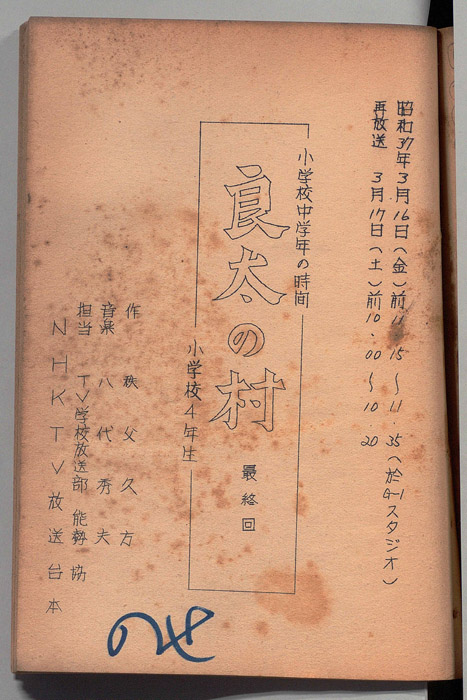 昭和37年3月16日(金)前11.15〜11.35(於G-1スタジオ)
再放送 3月17日(土)前10.00〜10.20
小学校中学年の時间
良太の村 最終回
小学校4年生
作 秩父久方
音楽 八代秀夫
担当 TV学校放送部 能勢 協
NHKTV放送台本
のせ